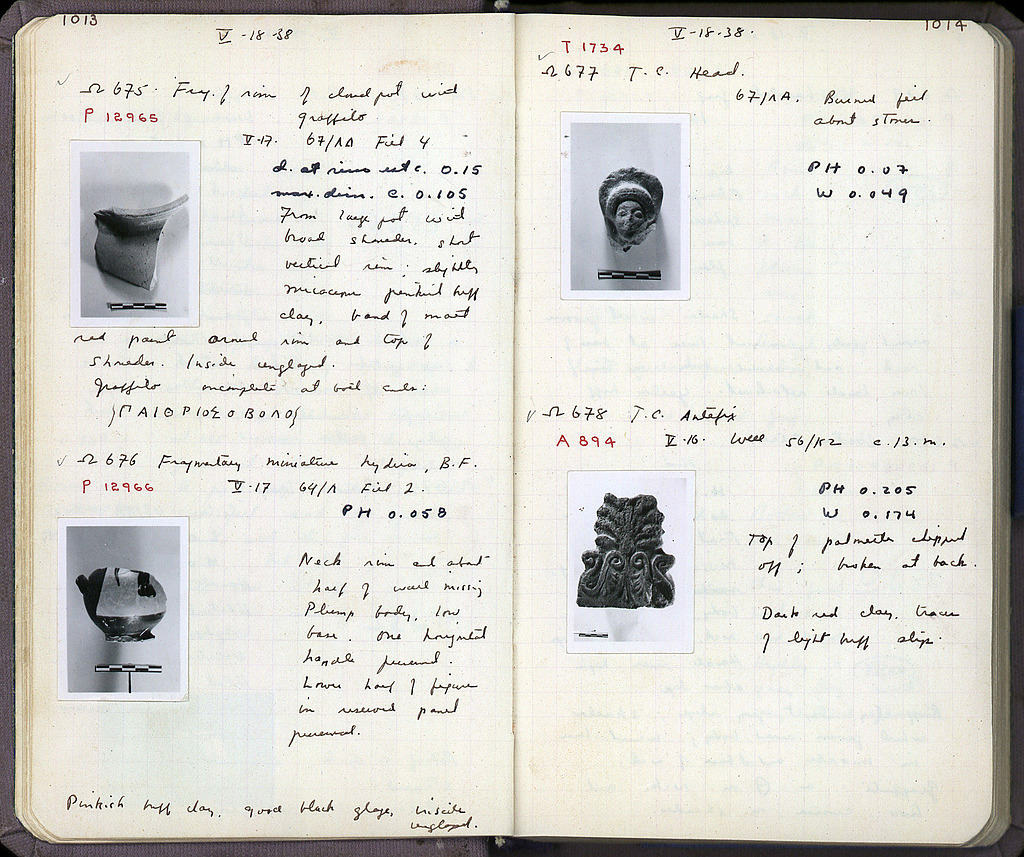 1013
V -18-38
Ω 675. Frag. of rim of closed pot with
P 12965 graffito
V-17. 67/ΛΔ Fill 4
d. at rim est c. 0.15
max. dim. c. 0.105
From large pot with
broad shoulder. short
vertical rim; slightly
micaceous pinkish buff
clay, band of matt
red paint around rim and top of
shoulder. Inside unglazed.
Graffito incomplete at both ends:
}ΠΑΙΘΡΙΟΣΟΒΟΛΟ{
Ω 676 Fragmentary miniature hydria, B.F.
P 12966 V-17 64/Λ Fill 2.
PH 0.058
Neck rim and about
half of wall missing
Plump body, low
base. One horizontal
handle preserved.
Lower half of figure
in reserved panel
preserved.
Pinkish buff clay, good black glaze, inside
unglazed.
1014
V -18-38.
T 1734
Ω 677 T.C. Head.
67/ΛΑ. Burned fill
about stones.
PH 0.07
W 0.049
Ω 678 T.C. Antefix
A 894 V-16. Well 56/ΚΖ c. 13. m.
PH 0.205
W 0.174
Top of palmette chipped
off; broken at back.
Dark red clay, traces
of light buff slip.